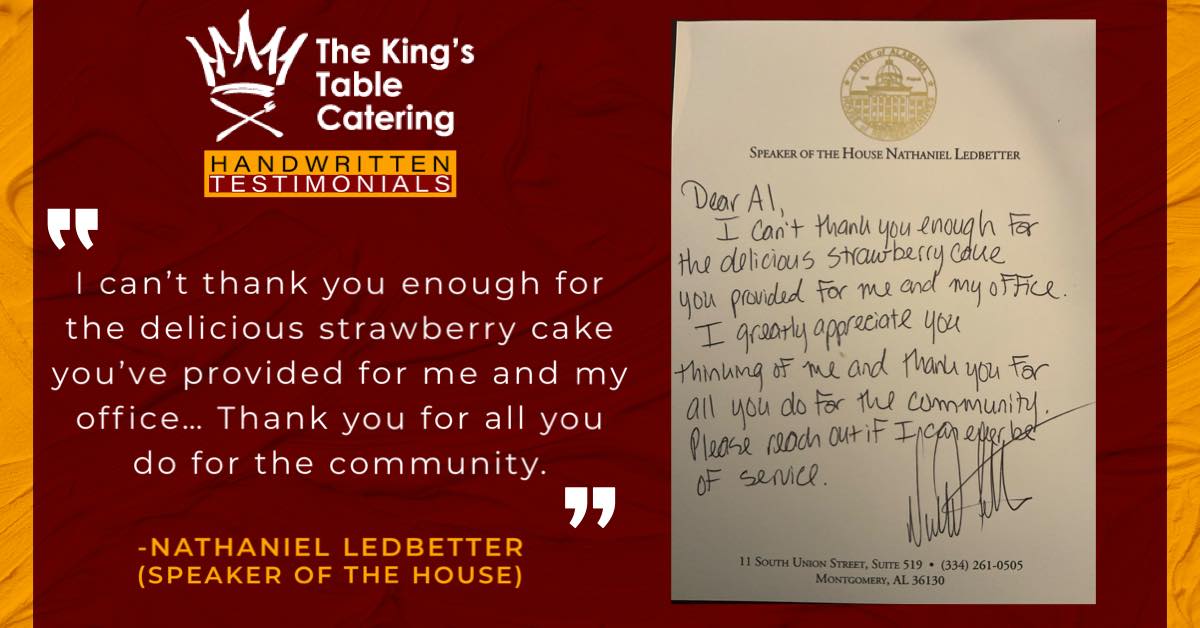 The King's
Table
Catering
HANDWRITTEN
TESTIMONIALS
"
I can't thank you enough for
the delicious strawberry cake
you've provided for me and my
office... Thank you for all you
do for the community.
"
-NATHANIEL LEDBETTER
(SPEAKER OF THE HOUSE)
STATE OF ALABAMA
HOUSE OF REPRESENTATIVES
SPEAKER OF THE HOUSE NATHANIEL LEDBETTER
Dear Al,
I can't thank you enough for
the delicious strawberry cake
you provided for me and my office.
I greatly appreciate you
thinking of me and thank you for
all you do for the community.
Please reach out if I can ever be
of service.
11 SOUTH UNION STREET, SUITE 519 • (334) 261-0505
MONTGOMERY, AL 36130